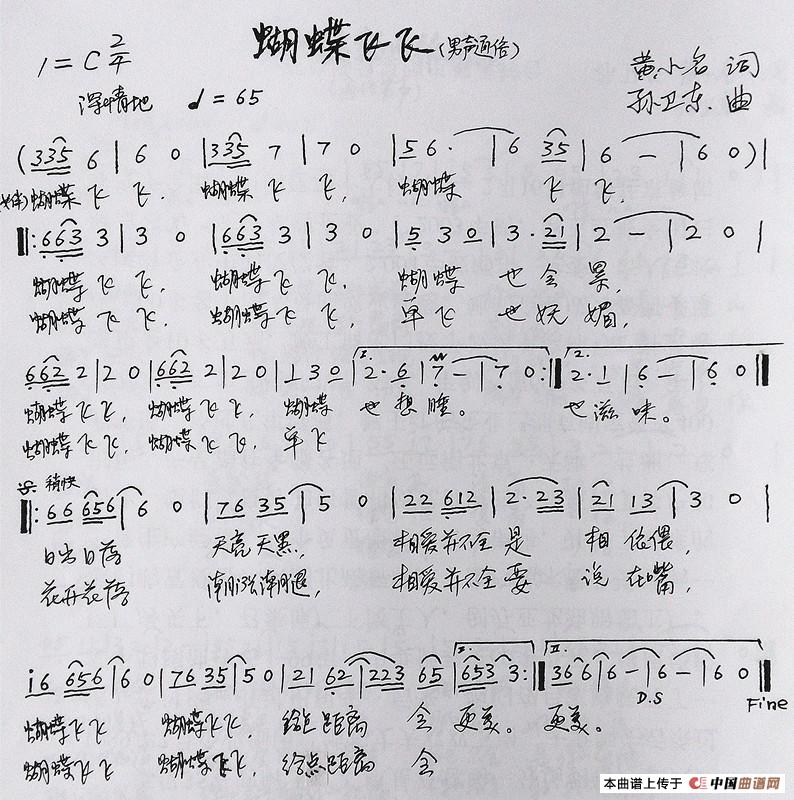 蝴蝶飞飞(男声通俗)
1=C 2/4
黄小名 词
深情地 ♩=65
孙卫东 曲
(335 6|6 0|335 7|7 0|56·|6 35|6 —|6 0)|
蝴蝶飞飞, 蝴蝶飞飞, 蝴蝶飞飞,
‖:663 3|3 0|663 3|3 0|5 3 0|3·21|2 —|2 0|
蝴蝶飞飞, 蝴蝶飞飞, 蝴蝶也会累,
蝴蝶飞飞, 蝴蝶飞飞, 单飞也妩媚,
662 2|2 0|662 2|2 0|1 3 0|1.2·6|7 —|7 0:‖2.2·1|6 —|6 0‖
蝴蝶飞飞, 蝴蝶飞飞, 蝴蝶也想睡。 也滋味。
蝴蝶飞飞, 蝴蝶飞飞, 单飞
稍快
‖:66 656|6 0|76 35|5 0|22 612|2·23|21 13|3 0|
日出日落 天亮天黑, 相爱并不全是相依偎,
花开花落 潮涨潮退, 相爱并不全要说在嘴,
i6 656|6 0|76 35|5 0|21 62|223 65|1.653 3:‖II.36 6|6 —|6 —|6 0‖
D.S
Fine
蝴蝶飞飞 蝴蝶飞飞, 给点距离 会更美。 更美。
蝴蝶飞飞 蝴蝶飞飞, 给点距离 会
本曲谱上传于 中国曲谱网